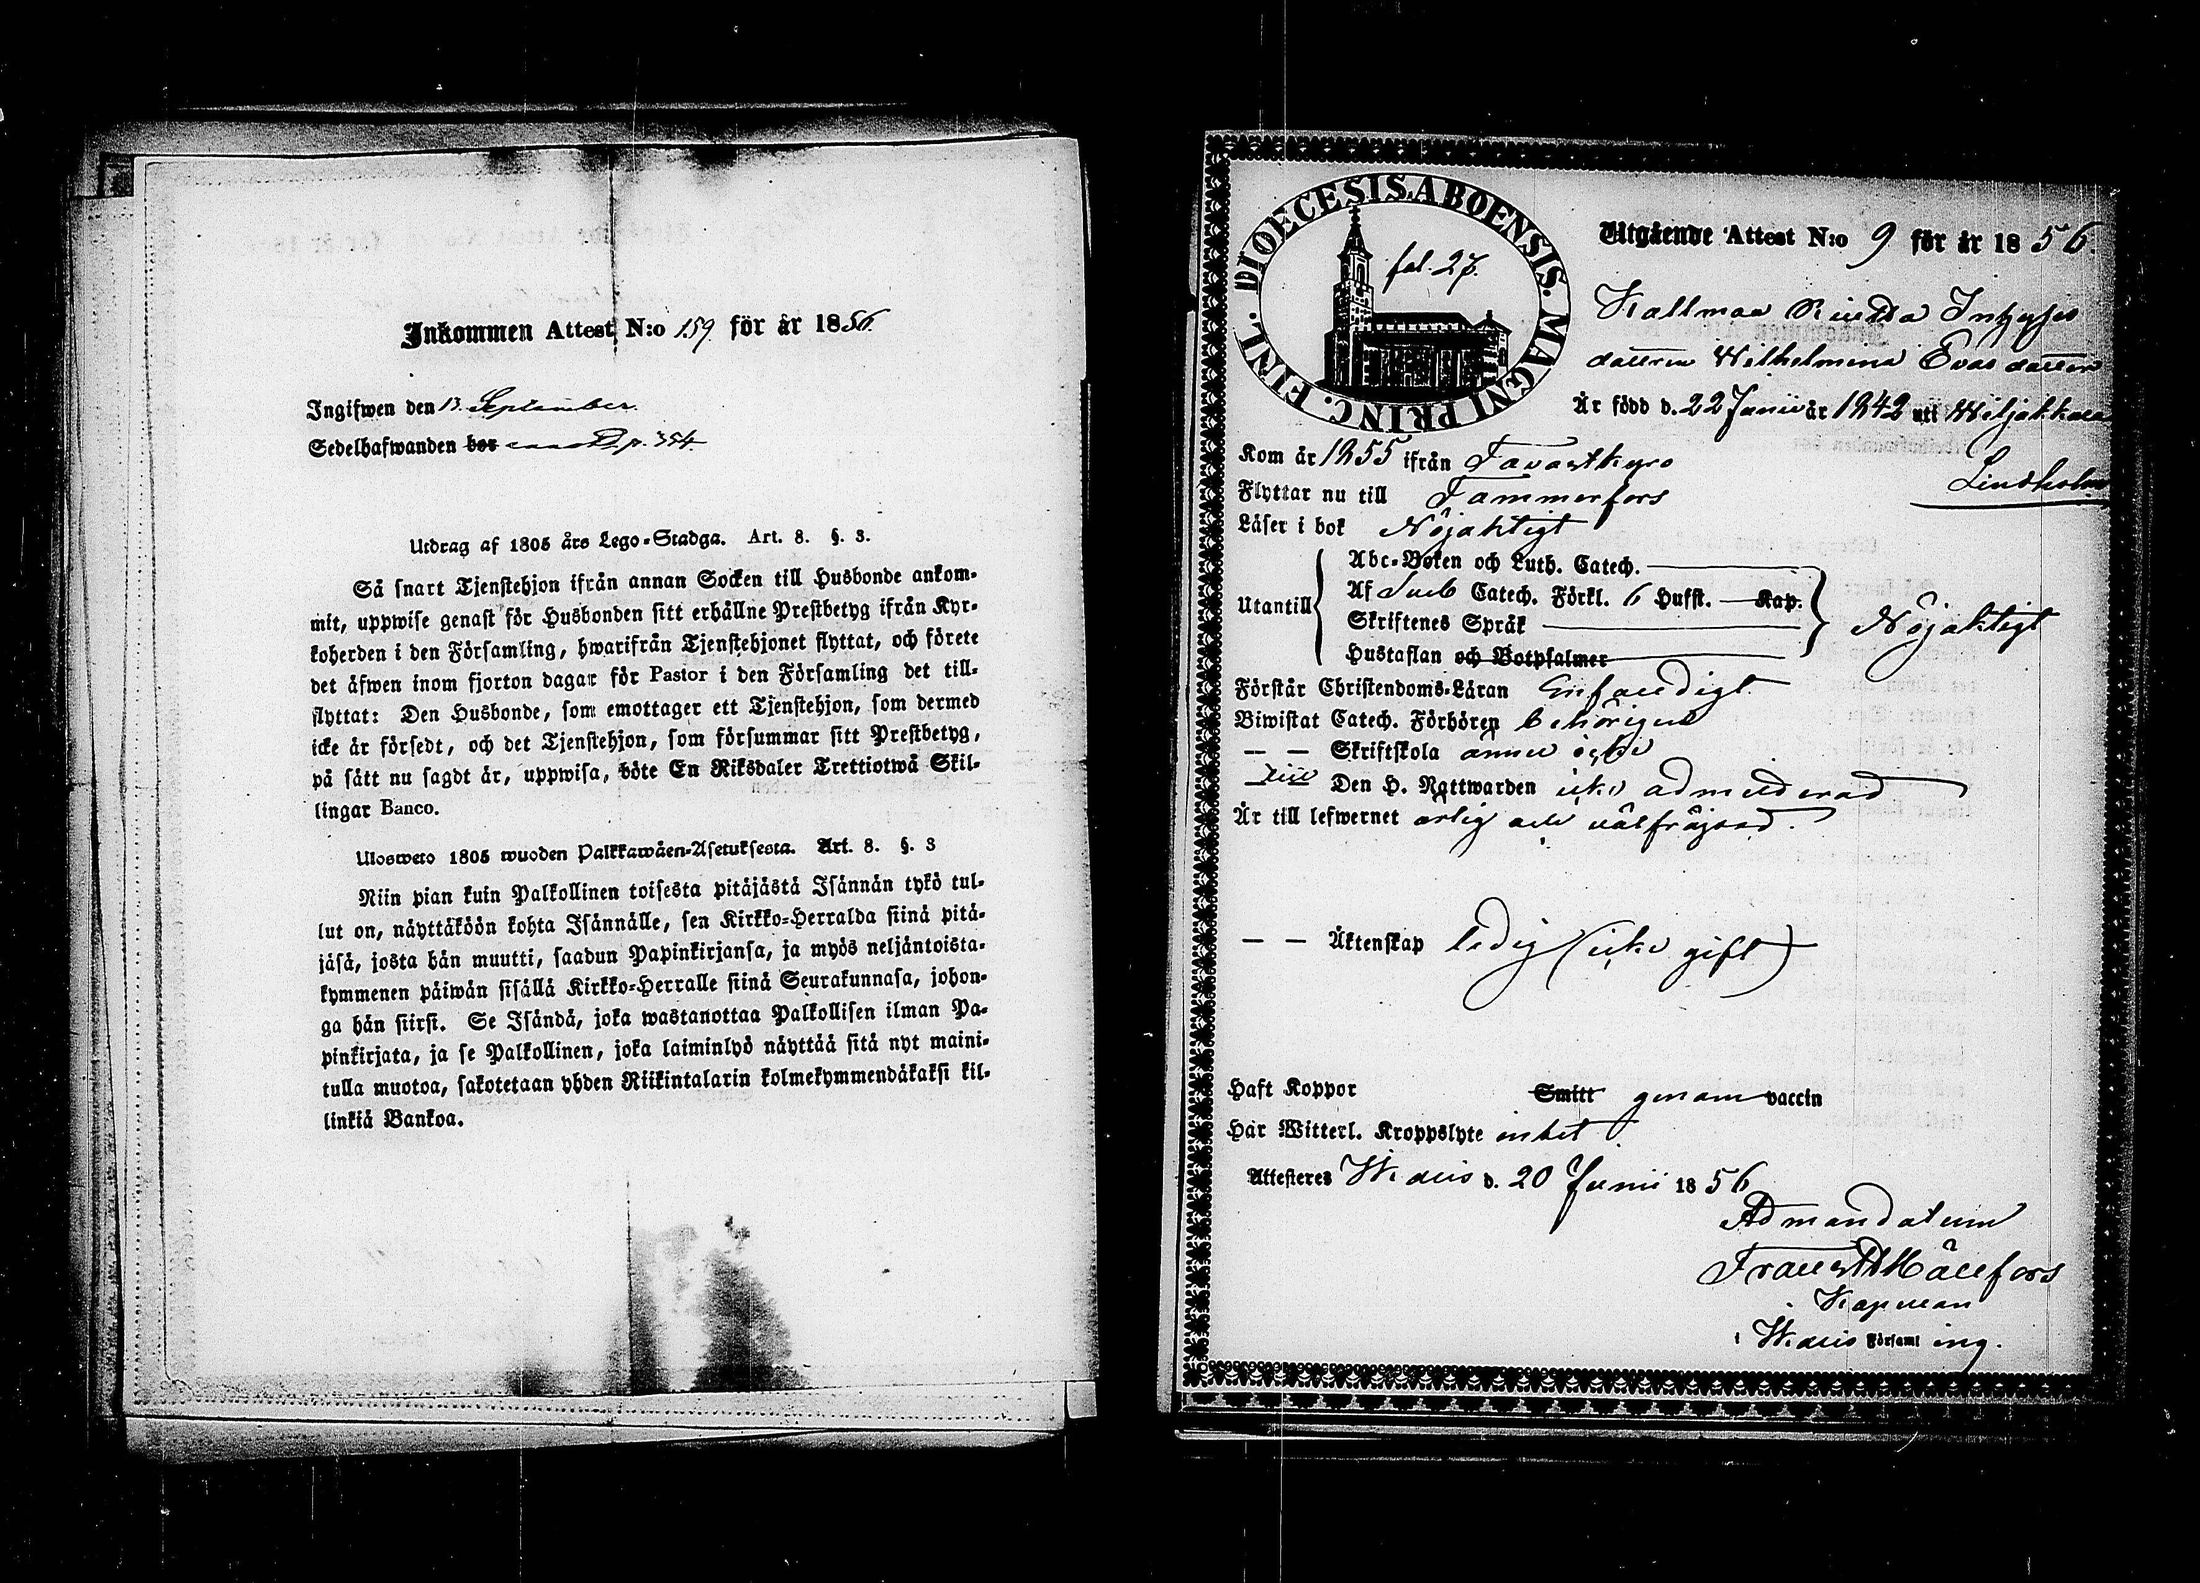 Inkommen Attest N:o 159. för år 1856.
Ingifwen den 13. September.
Sedelhafwanden bor p. 354.
Utdrag af 1805 års Lego-Stadga. Art. 8. §. 3.
Så snart Tjenstehjon ifrån annan Socken till Husbonde ankom-
mit, uppwise genast för Husbonden sitt erhållne Prestbetyg ifrån Kyr-
koherden i den Församling, hwarifrån Tjenstehjonet flyttat, och förete
det äfwen inom fjorton dagar för Pastor i den Församling det till-
flyttat: Den Husbonde, som emottager ett Tjenstehjon, som dermed
icke är försedt, och det Tjenstehjon, som försummar sitt Prestbetyg,
på sätt nu sagdt är, uppwisa, böte En Riksdaler Trettiotwå Skil-
lingar Banco.
Ulosweto 1805 wuoden Palkkawäen-Asetuksesta. Art. 8. §. 3
Niin pian kuin Palkollinen toisesta pitäjästä Isännän tykö tul-
lut on, näyttäköön kohta Isännälle, sen Kirkko-Herralda siinä pitä-
jäsä, josta hän muutti, saadun Papinkirjansa, ja myös neljäntoista-
kymmenen päiwän sisällä Kirkko-Herralle siinä Seurakunnasa, johon-
ga hän siirsi. Se Isändä, joka wastanottaa Palkollisen ilman Pa-
pinkirjata, ja se Palkollinen, joka laiminlyö näyttää sitä nyt maini-
tulla muotoa, sakotetaan yhden Riikintalarin kolmekymmendäkaksi kil-
linkiä Bankoa.
DIOECESIS.ABOENSIS. MAGNI PRINC. FINL.
fol. 27.
Utgående Attest N:o 9 för år 1856.
Inhyses
dottren Wilhelmina Evas dotter
Är född d. 22 Junii år 1842 uti Wiljakkala
Kom år 1855 ifrån Tavastkyro
Lindholm
Flyttar nu till Tammerfors
Läser i bok Nöjaktigt
Abc-Boken och Luth. Catech.
Utantill Af Sveb Catech. Förkl. 6 Hufst. Kap.
Skriftenes Språk Nöjaktigt
Hustaflan och Botpsalmer
Förstår Christendoms-Läran Enfaldigt
Biwistat Catech. Förhören behörigen
— — Skriftskola ännu icke
— — Den H. Nattwarden icke admitterad
Är till lefwernet ärlig och välfräjdad.
— — Äktenskap ledig (icke gift)
Haft Koppor Smitt genom vaccin
Har Witterl. Kroppslyte intet
Attesteres d. 20 Junii 1856
Ad mandatum
Kapellan
i Församling.